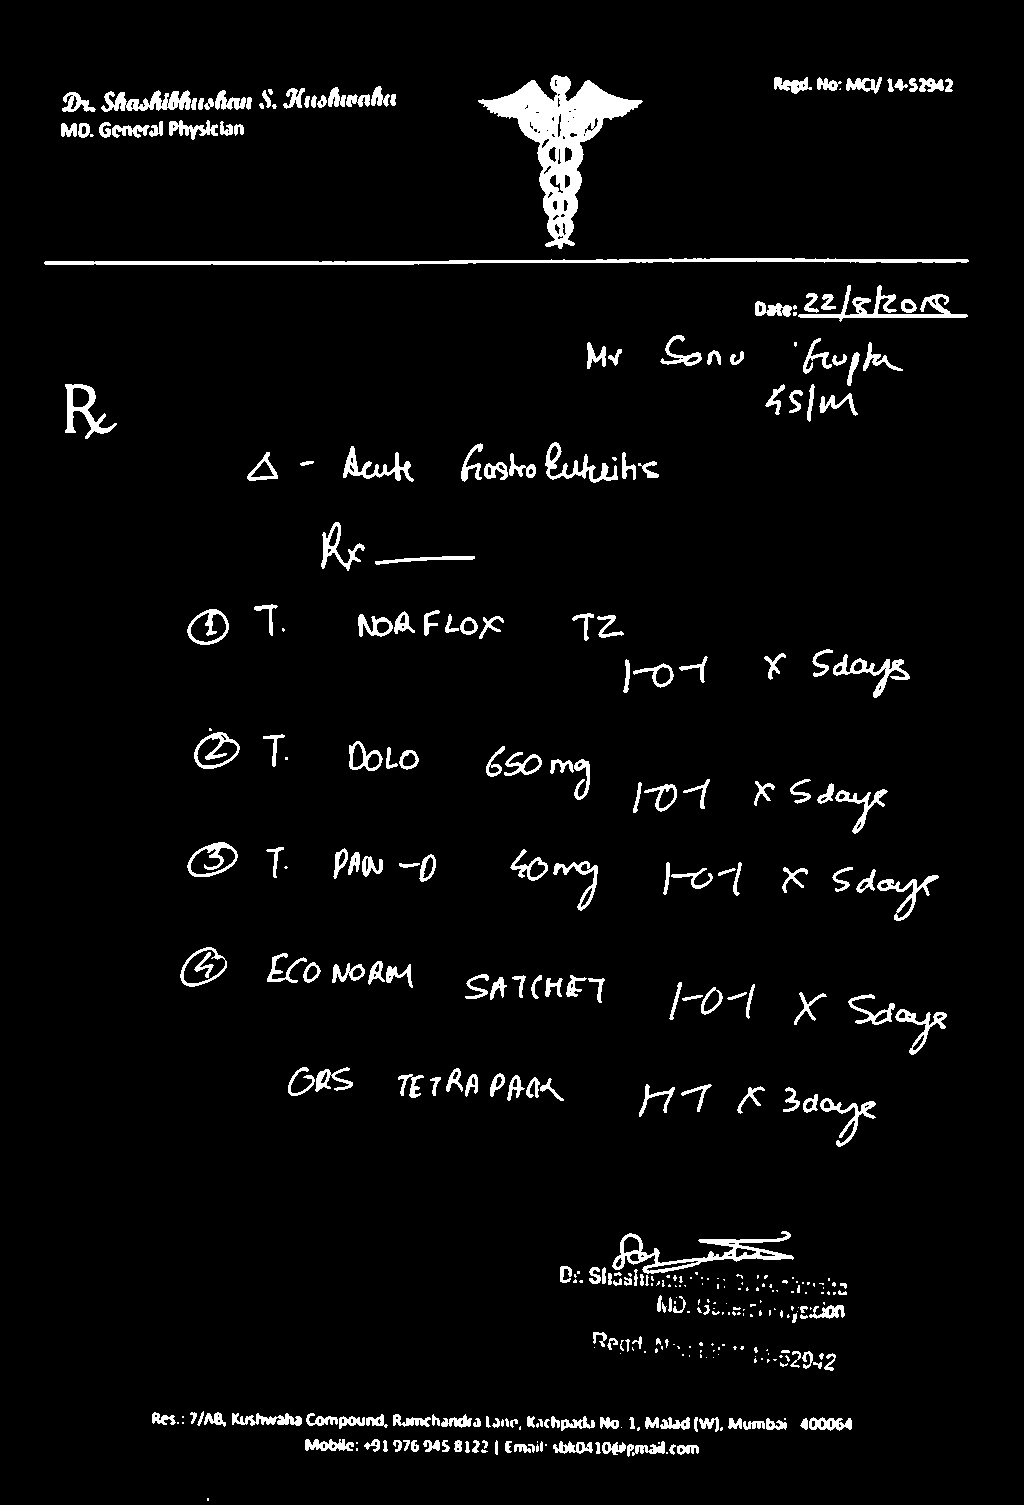 Dr. Shashibhushan S. Kushwaha
MD. General Physician
Regd. No: MCI/ 14-52942
Date: 22/8/2018
Mr Sonu Gupta
45/M
Rx
Δ - Acute Gastro Enteritis
Rx
① T. NORFLOX TZ
1-0-1 x 5days
② T. DOLO 650mg
1-0-1 x 5days
③ T. PAN-D 40mg 1-0-1 x 5days
④ ECONORM SATCHET 1-0-1 x 5days
ORS TETRAPACK 1-1-1 x 3days
Dr. Shashibhushan S. Kushwaha
MD. General Physician
Regd. No: MCI/ 14-52942
Res.: 7/AB, Kushwaha Compound, Ramchandra Lane, Kachpada No. 1, Malad (W), Mumbai 400064
Mobile: +91 976 945 8122 | Email: sbk0410@gmail.com